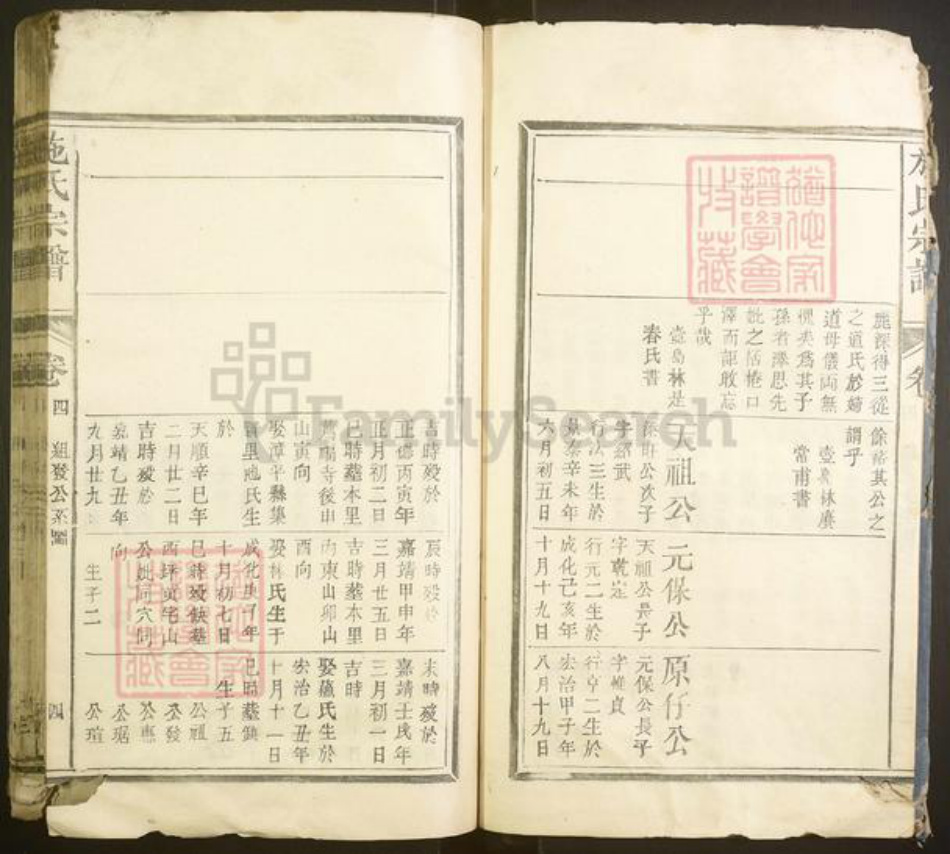 施氏宗譜
卷
之道氏於婦
道母儀両無
愧矣為其子
孫者澤思先
妣之恬惓口
澤而詎敢忘
乎哉
壺島林是
春氏書
餘裕其公之
謂乎
常甫書
天祖公
字紹武
行法三生於
景泰辛未年
六月初五日
吉時歿於
正德丙寅年
正月初二日
巳時墓本里
山寅向
娶漳平縣集
賢里施氏生
於
天順辛巳年
二月廿二日
吉時歿於
嘉靖乙丑年
九月廿九
元保公
天祖公長子
字乾定
行元二生於
成化己亥年
十月十九日
辰時歿於
嘉靖甲申年
三月廿五日
吉時墓本里
内東山卯山
酉向
娶林氏生于
成化庚子年
十月初七日
巳時歿缺墓
公妣同穴
向
生子二
原仔公
元保公長子
字惟貞
行亨二生於
宏治甲子年
八月十九日
未時歿於
嘉靖壬戌年
三月初一日
吉時
娶蘇氏生於
宏治乙丑年
十月十一日
巳時墓鎮
生子五
公祖
公發
公惠
公琚
公瑄
施氏宗譜
卷
四
組發公系圖
四
譜學會
收藏
FamilySearch